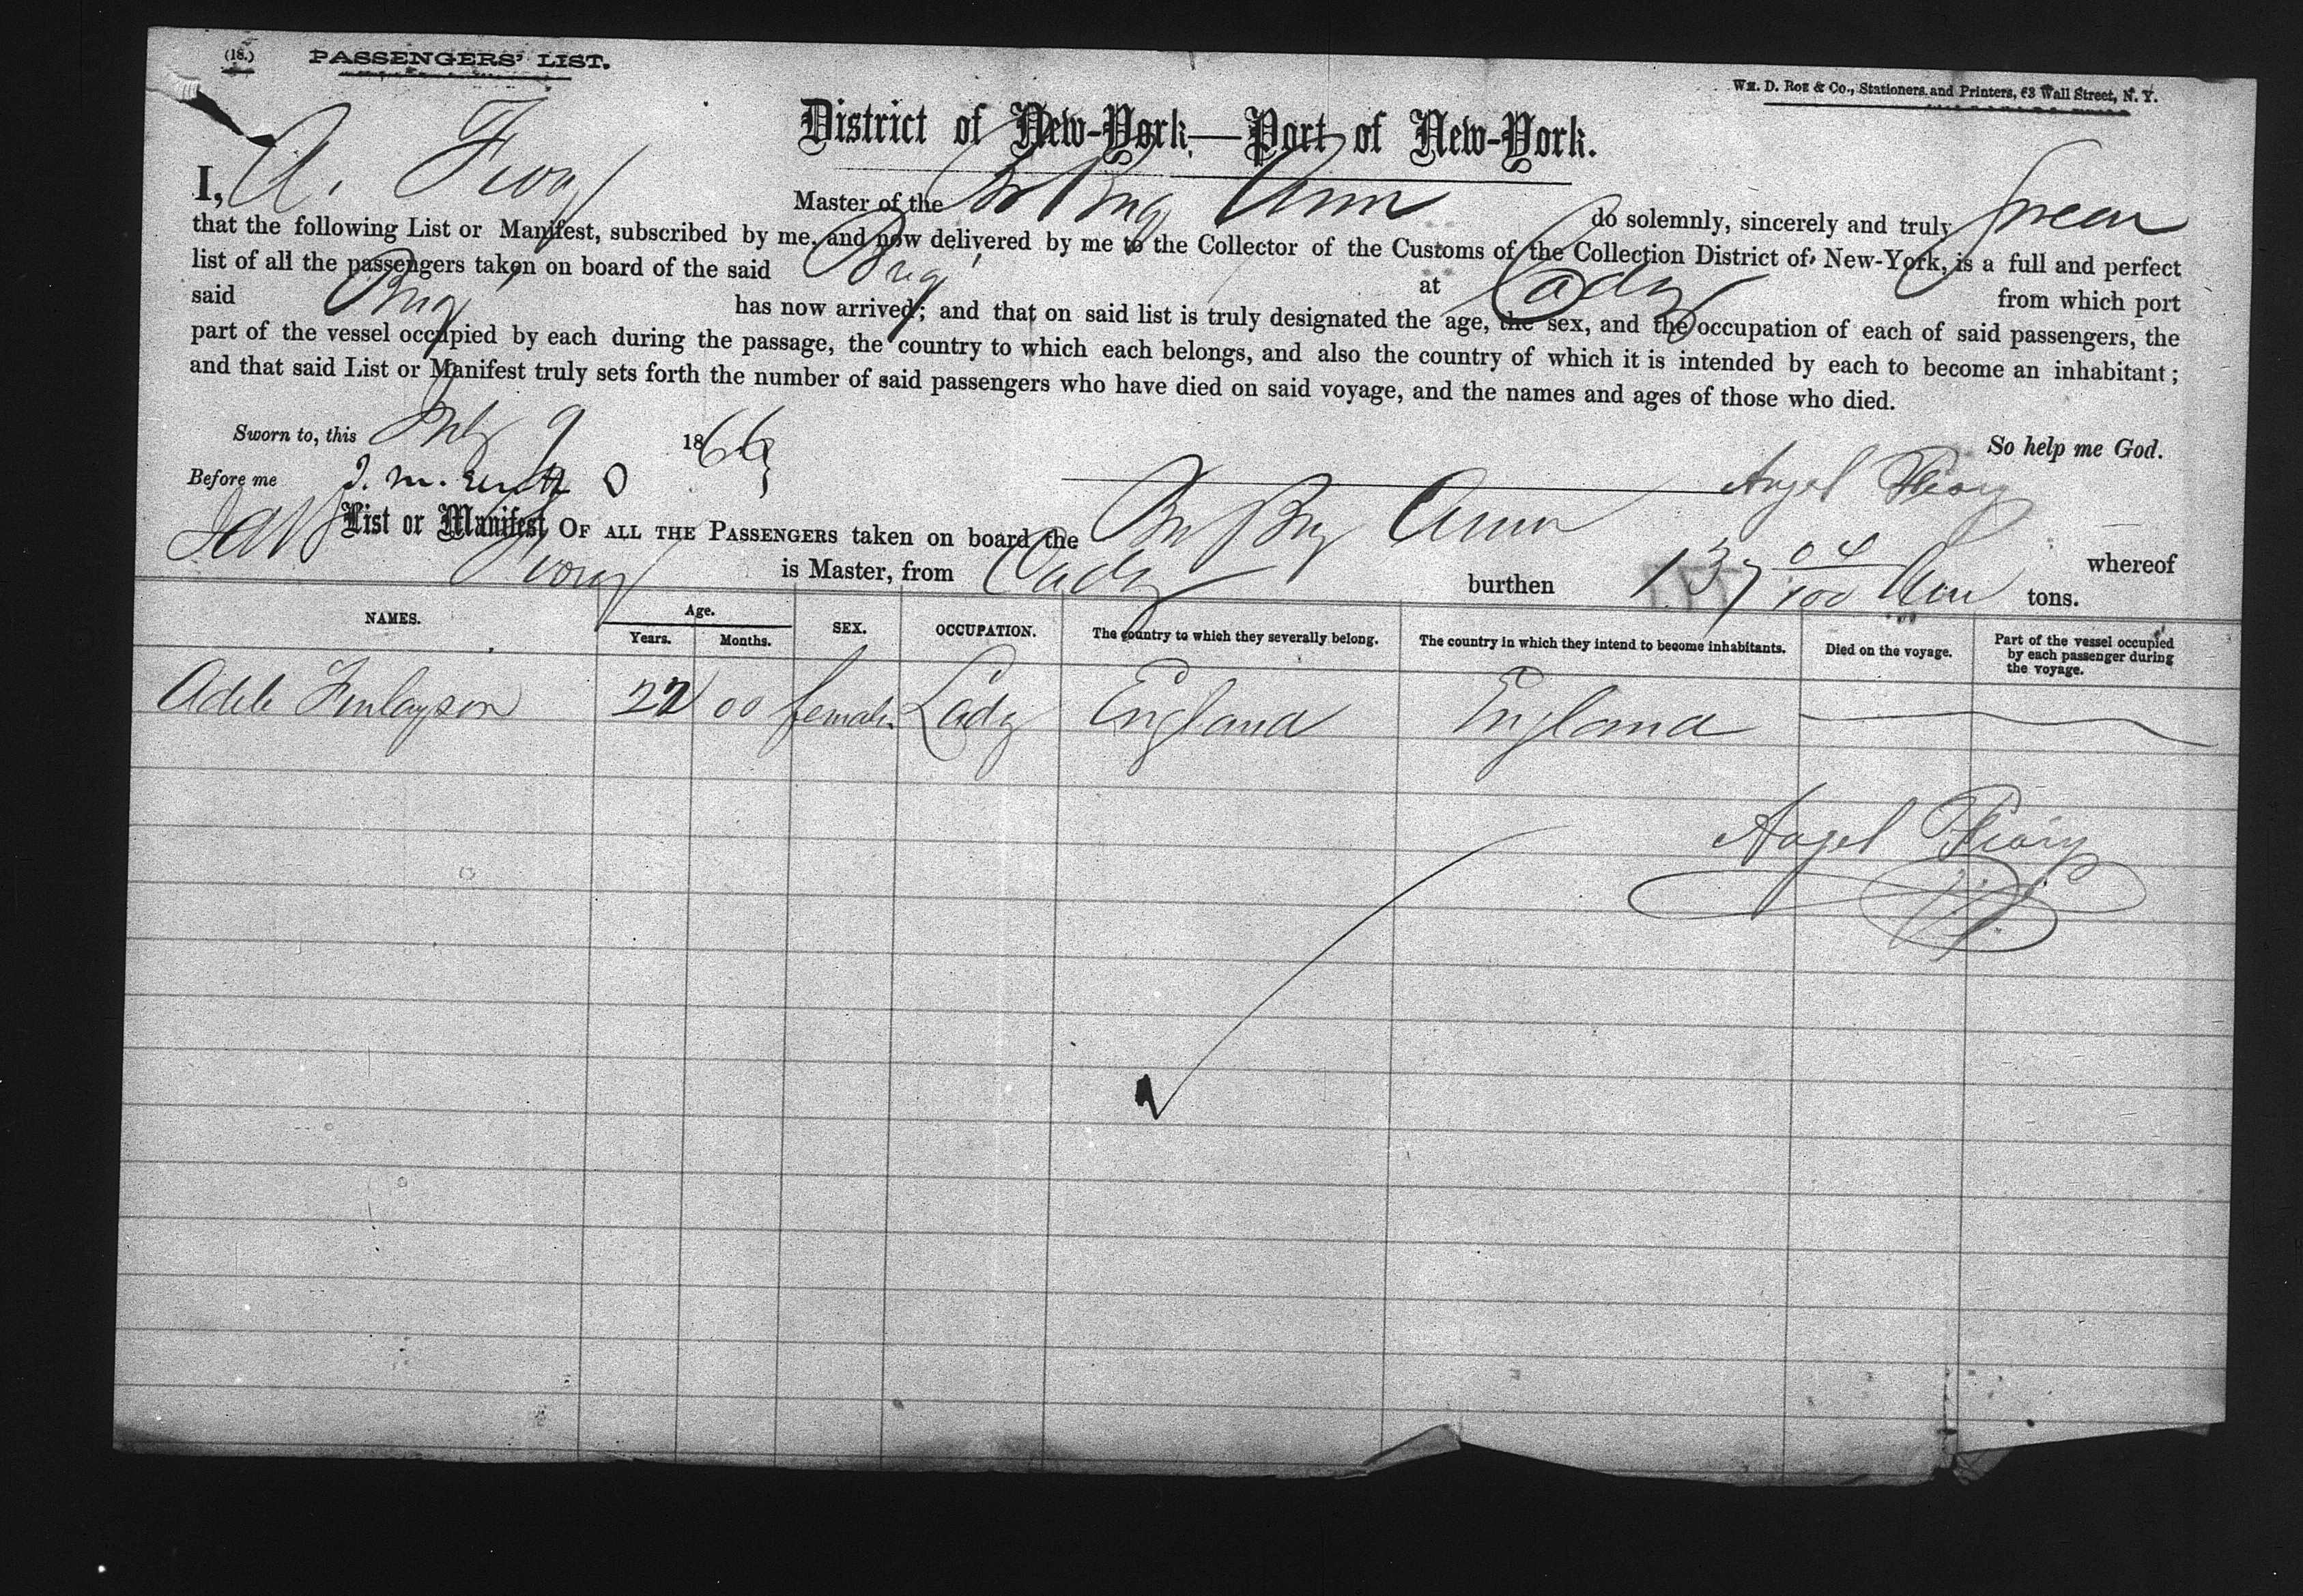 (18.) PASSENGERS' LIST.
Wm. D. Roe & Co., Stationers and Printers, 63 Wall Street, N. Y.
District of New-York,—Port of New-York.
I, A. Master of the Br Brig Ann do solemnly, sincerely and truly swear
that the following List or Manifest, subscribed by me, and now delivered by me to the Collector of the Customs of the Collection District of New-York, is a full and perfect
list of all the passengers taken on board of the said Brig at Cadiz from which port
said Brig has now arrived; and that on said list is truly designated the age, the sex, and the occupation of each of said passengers, the
part of the vessel occupied by each during the passage, the country to which each belongs, and also the country of which it is intended by each to become an inhabitant;
and that said List or Manifest truly sets forth the number of said passengers who have died on said voyage, and the names and ages of those who died.
So help me God.
Sworn to, this 9 1866
Before me Angel
List or Manifest OF ALL THE PASSENGERS taken on board the Br Brig Ann whereof
is Master, from Cadiz burthen 137 04/100 tons.
NAMES. Age. Years. Months. SEX. OCCUPATION. The country to which they severally belong. The country in which they intend to become inhabitants. Died on the voyage. Part of the vessel occupied by each passenger during the voyage.
Adele Finlayson 22 00 female Lady England England
Angel